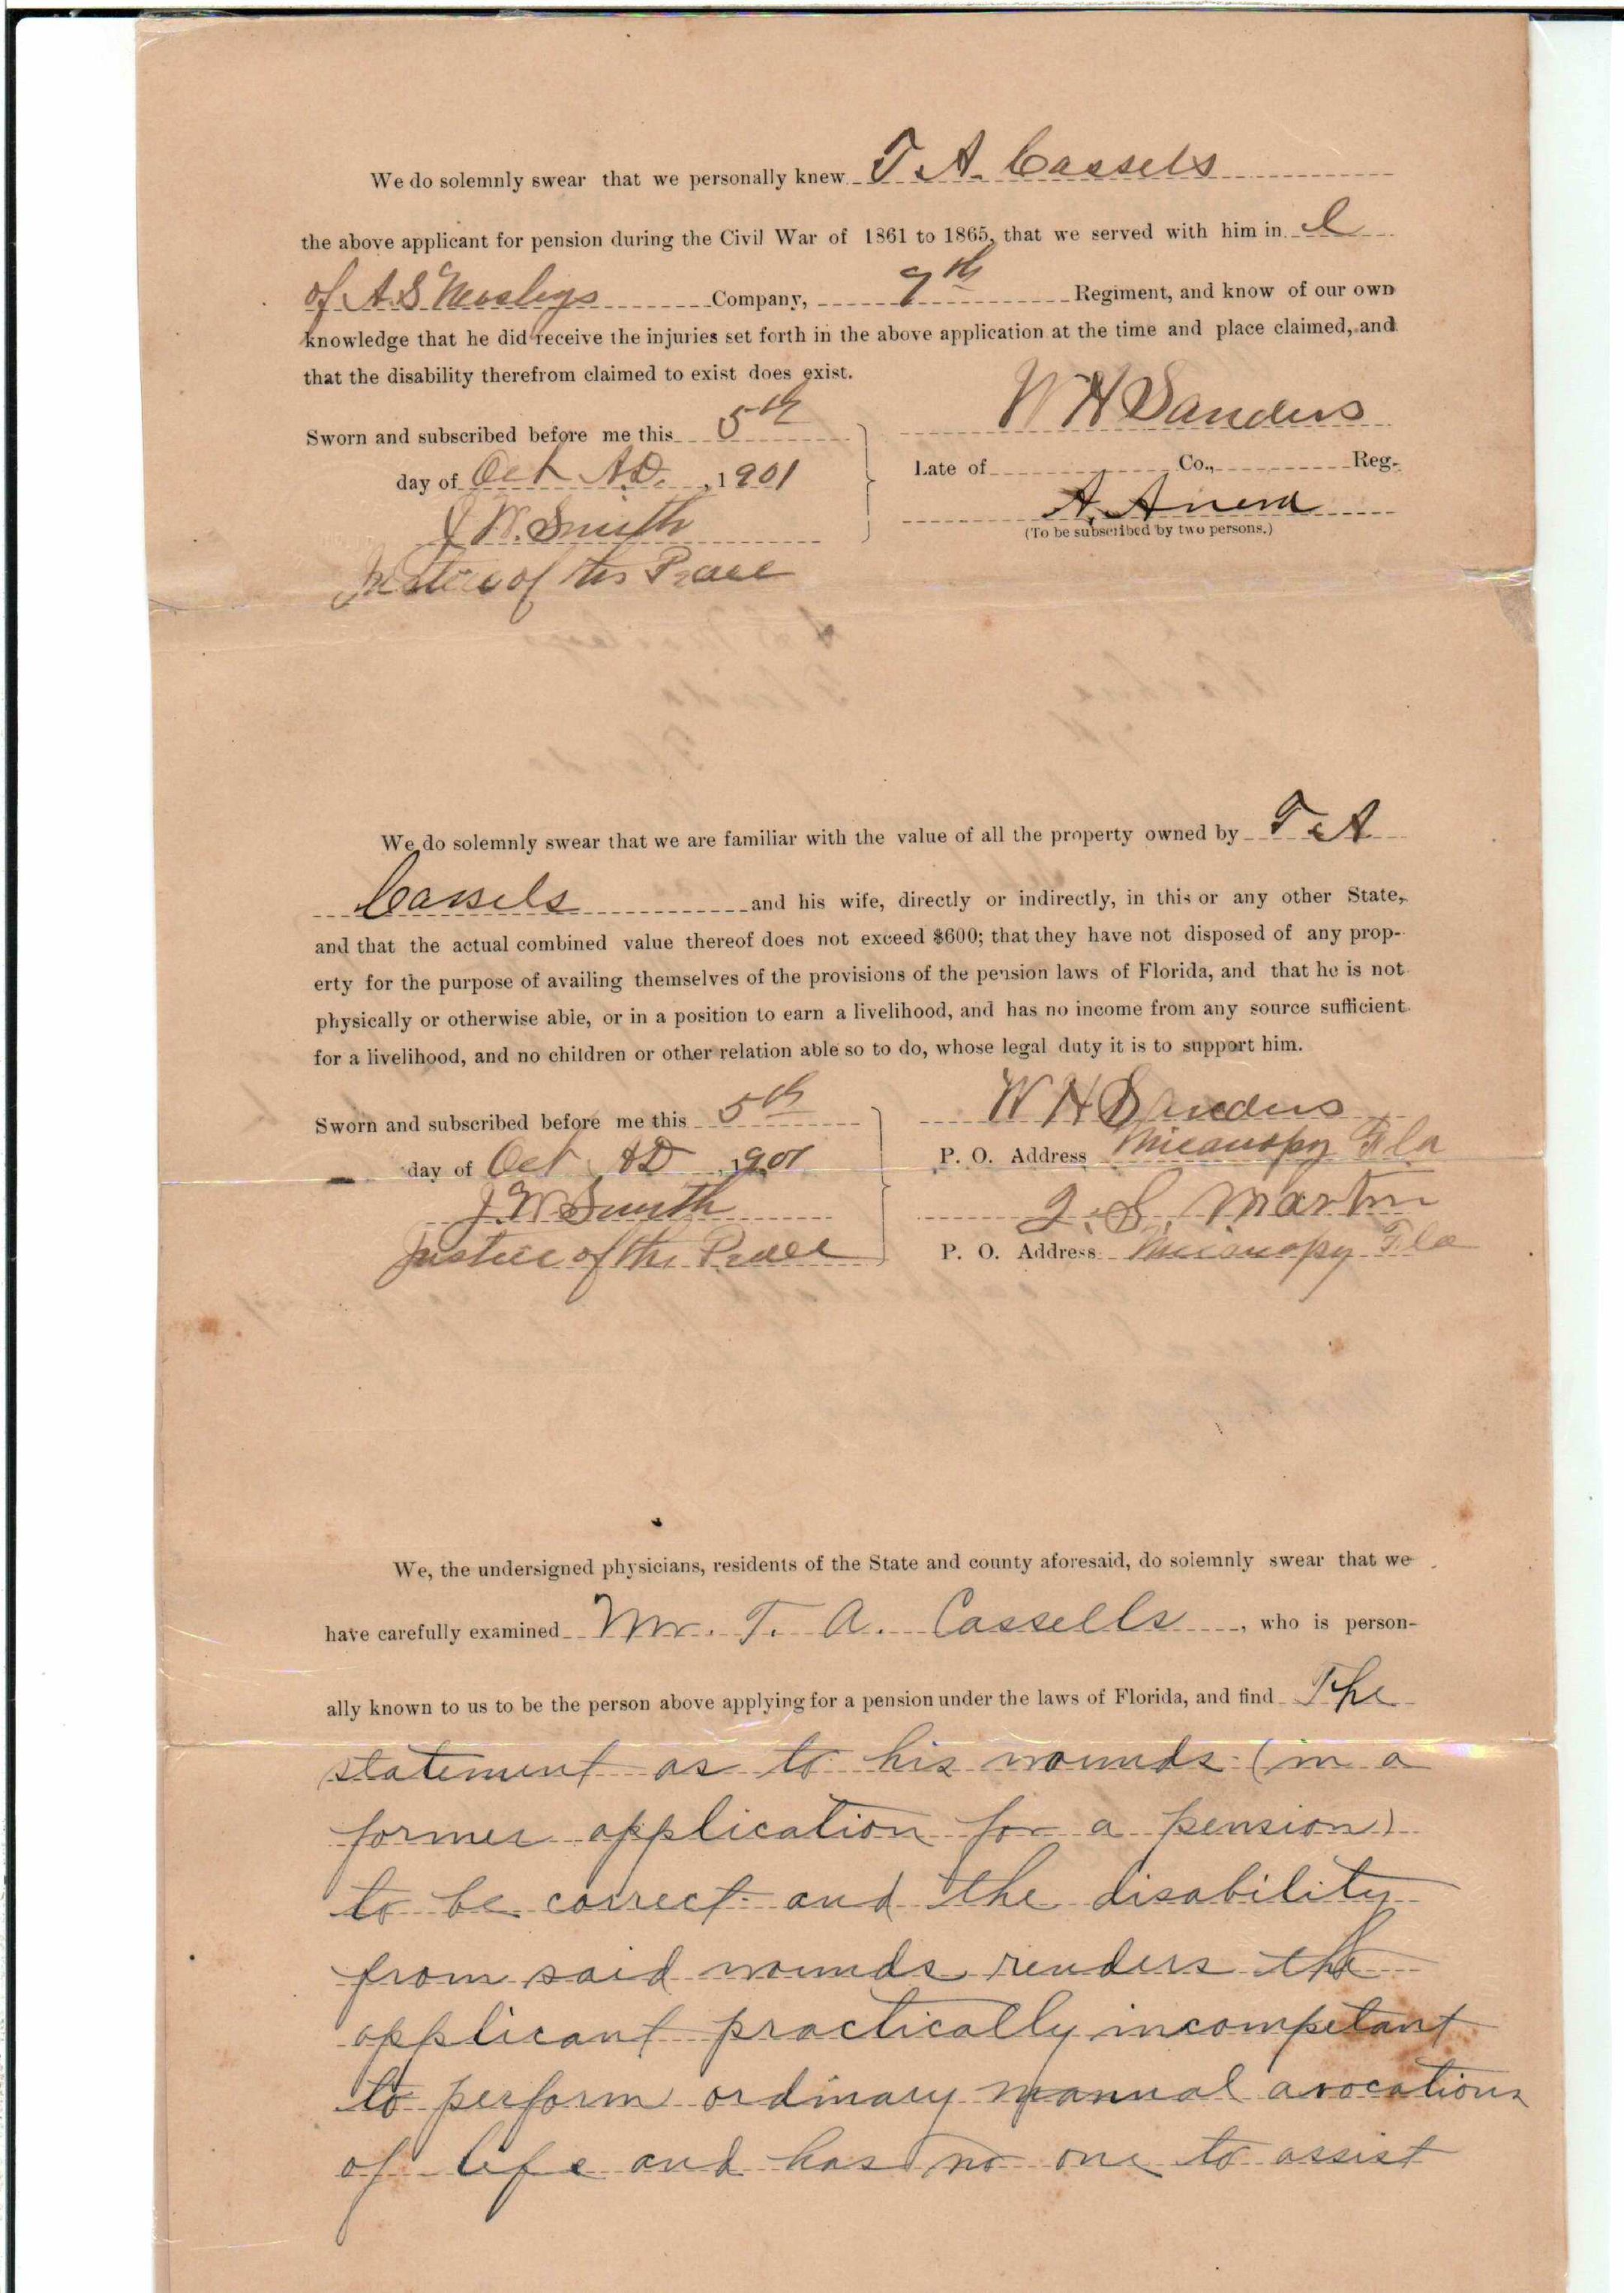 We do solemnly swear that we personally knew T. A. Cassels
the above applicant for pension during the Civil War of 1861 to 1865, that we served with him in
of A. S. Company, 7th Regiment, and know of our own
knowledge that he did receive the injuries set forth in the above application at the time and place claimed, and
that the disability therefrom claimed to exist does exist.
Sworn and subscribed before me this 5th
W H Sanders
day of Oct A.D. , 1901
Late of Co., Reg.
J W. Smith
A.
(To be subscribed by two persons.)
Justice of the Peace
We do solemnly swear that we are familiar with the value of all the property owned by T. A
Cassels and his wife, directly or indirectly, in this or any other State,
and that the actual combined value thereof does not exceed $600; that they have not disposed of any prop-
erty for the purpose of availing themselves of the provisions of the pension laws of Florida, and that he is not
physically or otherwise able, or in a position to earn a livelihood, and has no income from any source sufficient
for a livelihood, and no children or other relation able so to do, whose legal duty it is to support him.
Sworn and subscribed before me this 5th
W H Sanders
day of Oct AD , 1901
P. O. Address Micanopy Fla
J. W. Smith
S. Martin
Justice of the Peace
P. O. Address Micanopy Fla
We, the undersigned physicians, residents of the State and county aforesaid, do solemnly swear that we
have carefully examined Mr. T. A. Cassells , who is person-
ally known to us to be the person above applying for a pension under the laws of Florida, and find The
statement as to his wounds (in a
former application for a pension)
to be correct and the disability
from said wounds renders the
applicant practically incompetant
to perform ordinary manual avocations
of life and has no one to assist